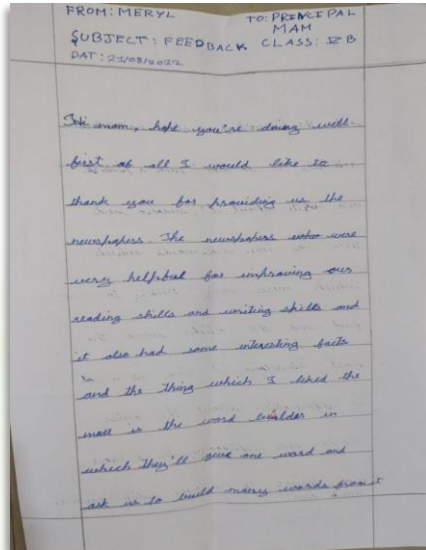 FROM: MERYL TO: PRINCIPAL
MAM
SUBJECT: FEEDBACK CLASS: IV B
DAT: 23/08/2022
Hi mam, hope you're doing well.
first of all I would like to
thank you for providing us the
newspapers. The newspapers were
very helpful for improving our
reading skills and writing skills and
it also had some interesting facts
and the thing which I liked the
most is the word builder in
which they'll give one word and
ask us to build many words from it